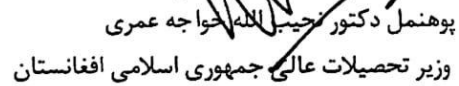 پوهنمل دکتور نجیب الله خواجه عمری
وزیر تحصیلات عالی جمهوری اسلامی افغانستان